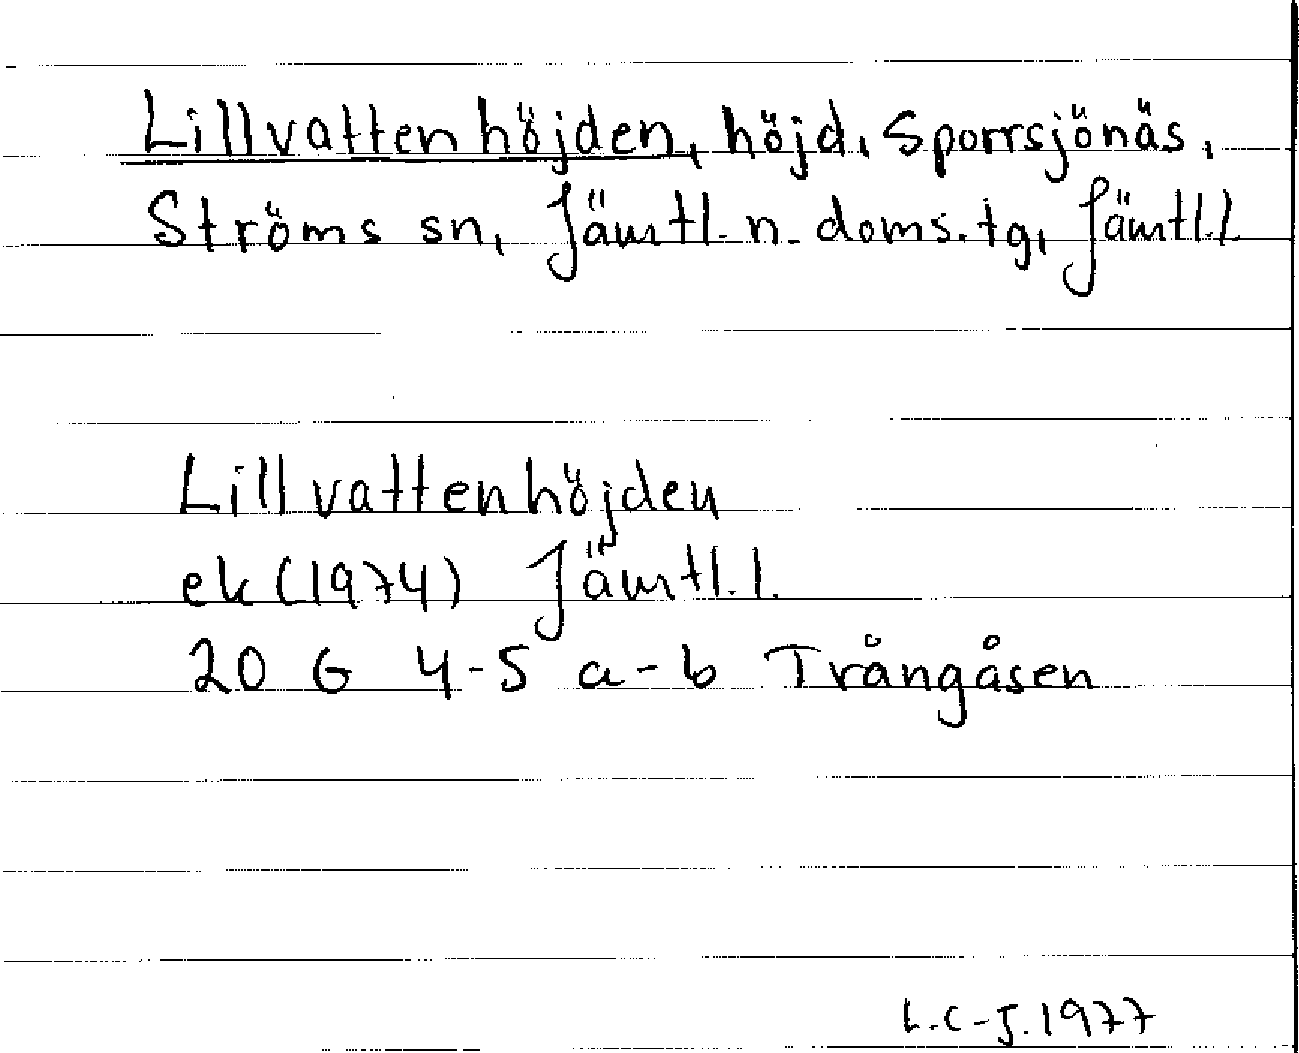 Lillvattenhöjden, höjd, Sporrsjönäs,
Ströms sn, Jämtl. n. doms.tg, Jämtl.l
Lillvattenhöjden
ek (1974) Jämtl.l.
20 G 4-5 a-b Trångåsen
L.C-J. 1977